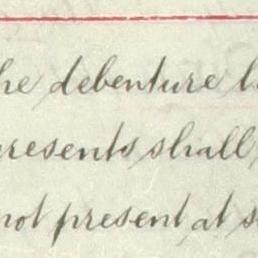 he debenture
presents shall
not present at